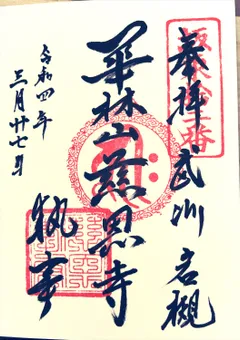 奉拝 武州 岩槻
華林山慈恩寺
執事
令和四年
三月廿七日